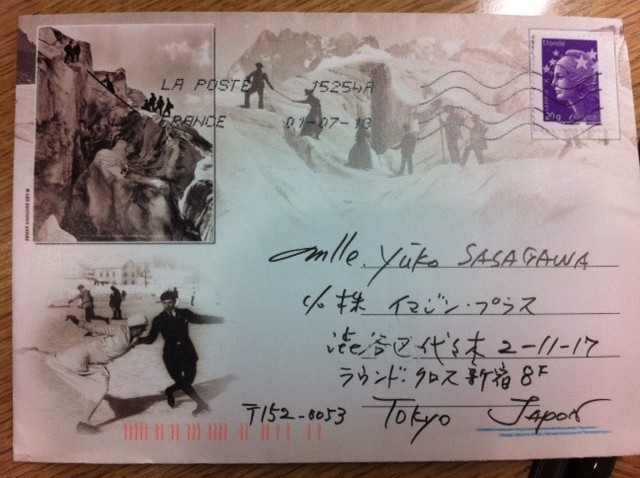 LA POSTE 15254A
FRANCE 01-07-13
Monde
20g FRANCE
Mlle. Yūko SASAGAWA
c/o 株 イマジン・プラス
渋谷区代々木 2-11-17
ラウンド・クロス新宿 8F
〒152-0053 TOKYO JAPON